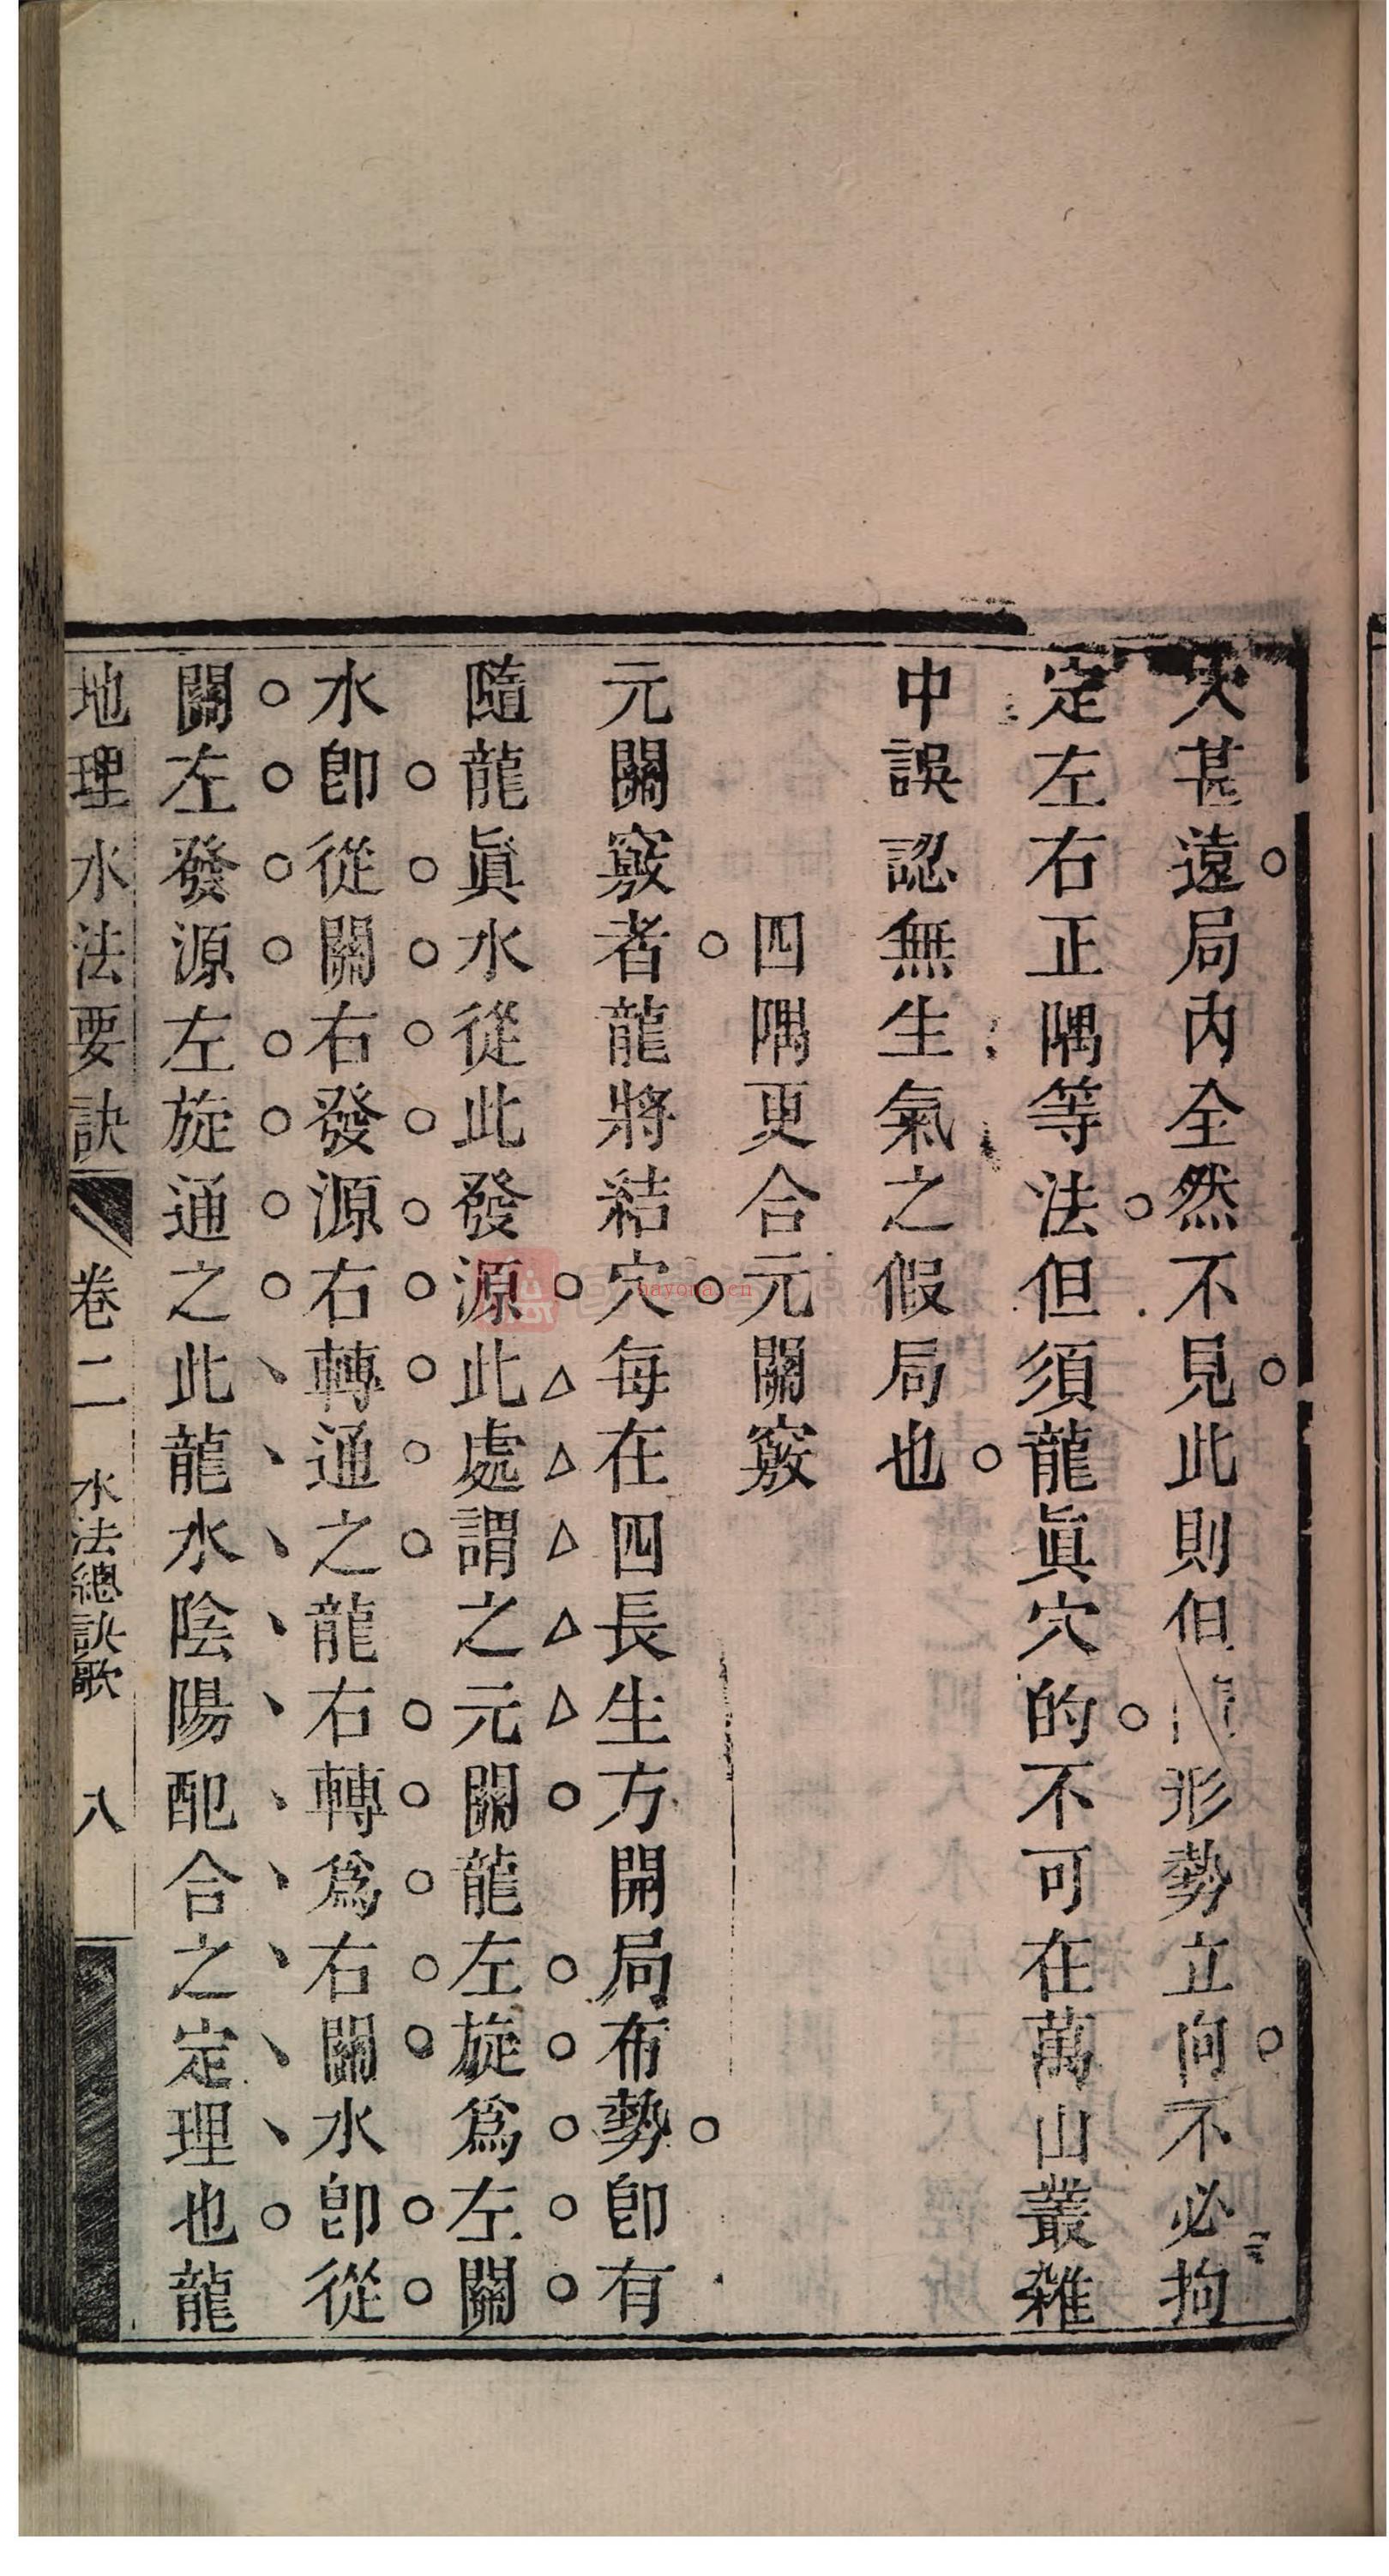 甚遠局內全然不見此則但形勢立向不必拘
定左右正隅等法但須龍眞穴的不可在萬山叢雜
中誤認無生氣之假局也
四隅更合元關竅
元關竅者龍將結穴每在四長生方開局布勢卽有
隨龍眞水從此發源此處謂之元關龍左旋爲左關
水卽從關右發源右轉通之龍右轉爲右關水卽從
關左發源左旋通之此龍水陰陽配合之定理也龍
地理水法要訣 卷二 水法總訣歌 八
nayona.cn